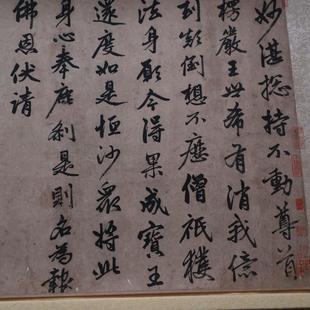 妙湛揔持不動尊首
楞嚴王世希有消我億
劫顛倒想不歷僧祇獲
法身願今得果成寶王
還度如是恒沙眾將此
身心奉塵刹是則名為報
佛恩伏請